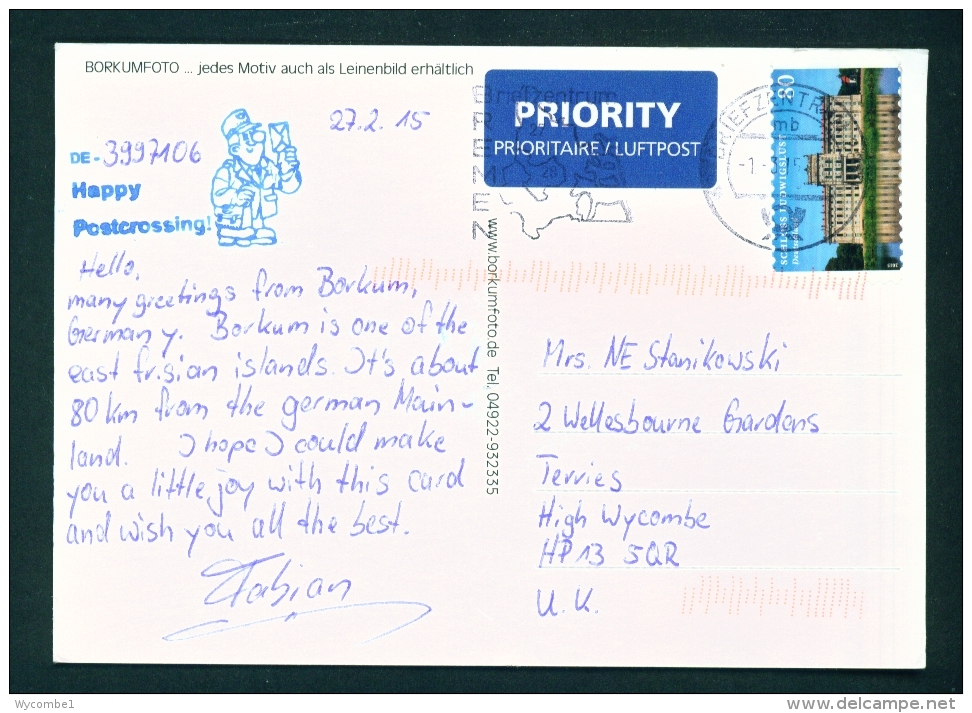 BORKUMFOTO ... jedes Motiv auch als Leinenbild erhältlich
27.2.15
DE-3997106
Happy
Postcrossing!
Hello,
many greetings from Borkum,
Germany. Borkum is one of the
east frisian islands. It's about
80 km from the german Main-
land. I hope I could make
you a little joy with this card
and wish you all the best.
Fabian
www.borkumfoto.de Tel. 04922-932335
PRIORITY
PRIORITAIRE / LUFTPOST
BREMEN
27
28
BRIEFZENTR
mb
-1.-3.15
80
SCHLOSS LUDWIGSLUST
2015
Mrs. NE Stanikowski
2 Wellesbourne Gardens
Terries
High Wycombe
HP13 5QR
U.K.
Wycombe1
© www.delcampe.net